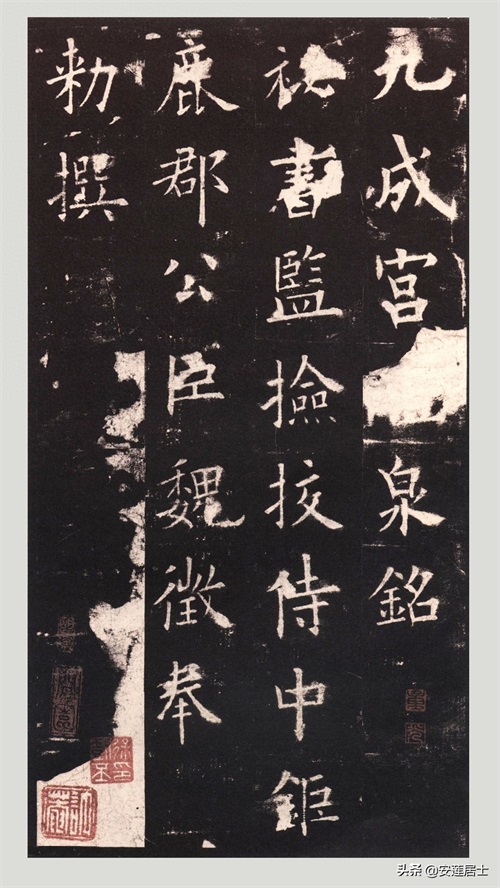 九成宮泉銘
祕書監撿挍侍中鉅
鹿郡公臣魏徵奉
勑撰
头条 @安莲居士